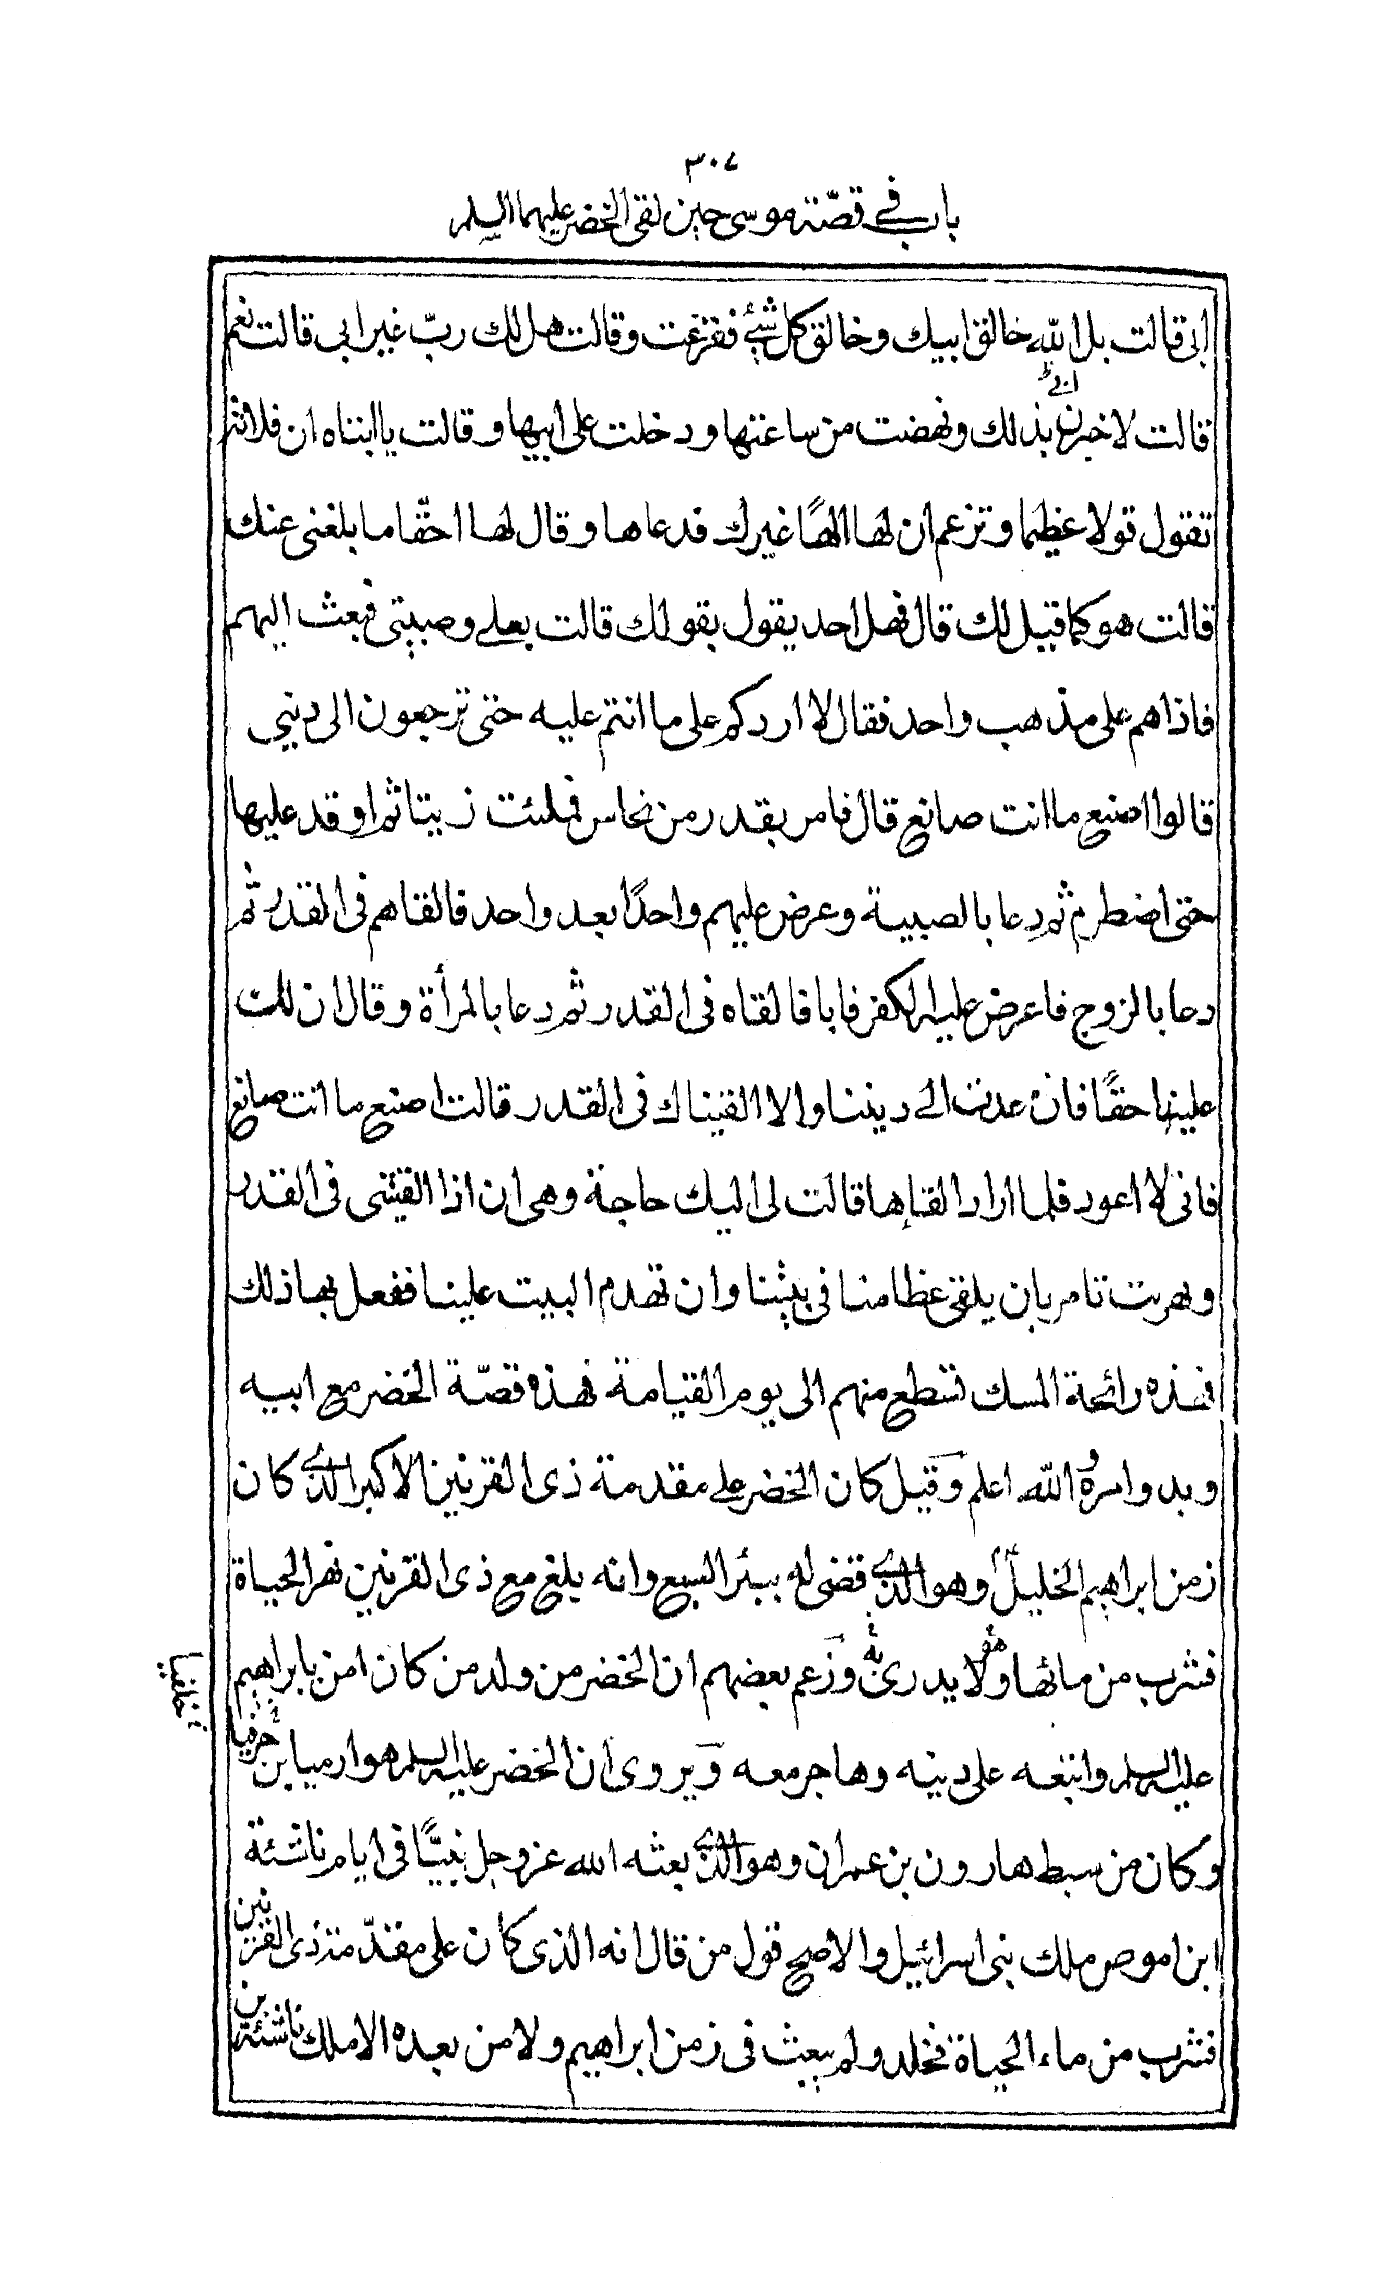 ٣٠٧
باب في قصّة موسى حين لقى الخضر عليهما السلم
ابى قالت بل الله خالق ابيك وخالق كل شئ ففزعت وقالت هل لك ربّ غير ابى قالت نعم
ابى
قالت لاخبرن بذلك ونهضت من ساعتها ودخلت على ابيها وقالت يا ابتاه ان فلانة
تقول قولا عظيما وتزعم ان لها الهًا غيرك فدعاها وقال لها احقّا ما بلغنى عنك
قالت هو كما قيل لك قال فهل احد يقول بقولك قالت بعلى وصبيتى فبعث اليهم
فاذا هم على مذهب واحد فقال لا اردكم على ما انتم عليه حتى ترجعون الى دينى
قالوا اصنع ما انت صانع قال فامر بقدر من نحاس فملئت زيتا ثم اوقد عليها
حتى اضطرم ثم دعا بالصبية وعرض عليهم واحدًا بعد واحد فالقاهم فى القدر ثم
دعا بالزوج فاعرض عليه الكفر فابا فالقاه فى القدر ثم دعا بالمرأة وقال ان لك
علينا حقًا فان عدت الى ديننا والا القيناك فى القدر قالت اصنع ما انت صانع
فانى لا اعود فلما اراد القاءها قالت لى اليك حاجة وهى ان اذا القيتنى فى القدر
وبهريت تامر بان يلقى عظامنا فى بيتنا وان تهدم البيت علينا ففعل بها ذلك
فهذه رائحة المسك تسطع منهم الى يوم القيامة فهذه قصّة الخضر مع ابيه
وبدو امره والله اعلم وقيل كان الخضر على مقدمة ذى القرنين الاكبر الذى كان
زمن ابراهيم الخليل وهو الذى قضى له ببئر السبع وانه بلغ مع ذى القرنين نهر الحياة
فشرب من مائها وهو لا يدرى به وزعم بعضهم ان الخضر من ولد من كان امن بابراهيم
خلفيا
عليه السلم واتبعه على دينه وهاجر معه ويروى ان الخضر عليه السلم هو ارميا بن
وكان من سبط هارون بن عمران وهو الذى بعثه الله عز وجل نبيًّا فى ايام ناشئة
ابن اموص ملك بنى اسرائيل والاصح قول من قال انه الذى كان على مقدّمة ذى القرنين
فشرب من ماء الحياة فخلد ولم يبعث فى زمن ابراهيم ولا من بعده الا ملك ناشئة بن